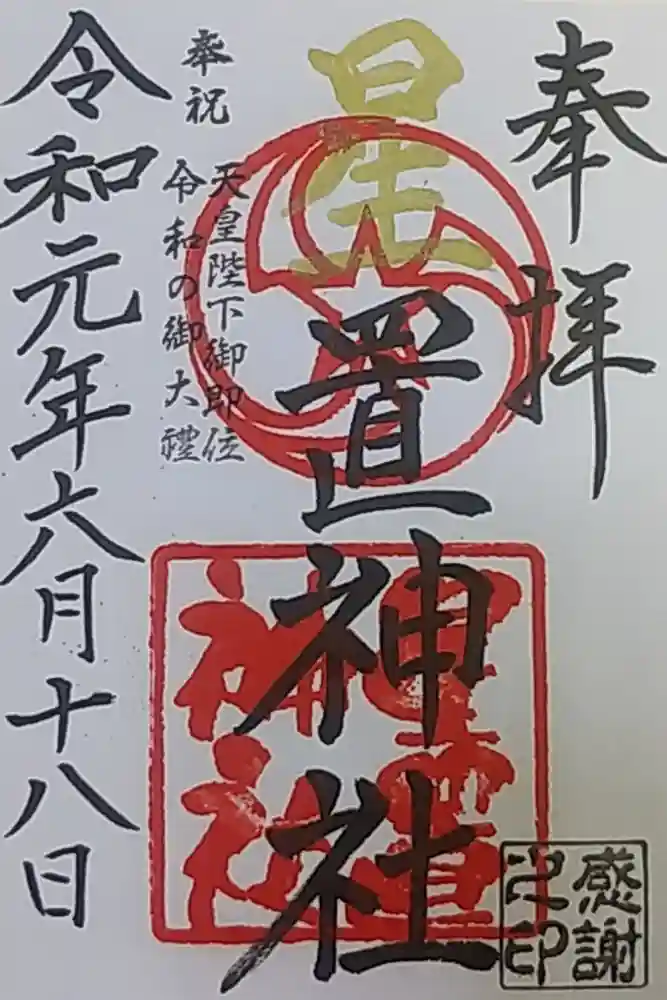 奉拝
星置神社
奉祝
天皇陛下御即位
令和の御大禮
令和元年六月十八日
星置神社
感謝之印